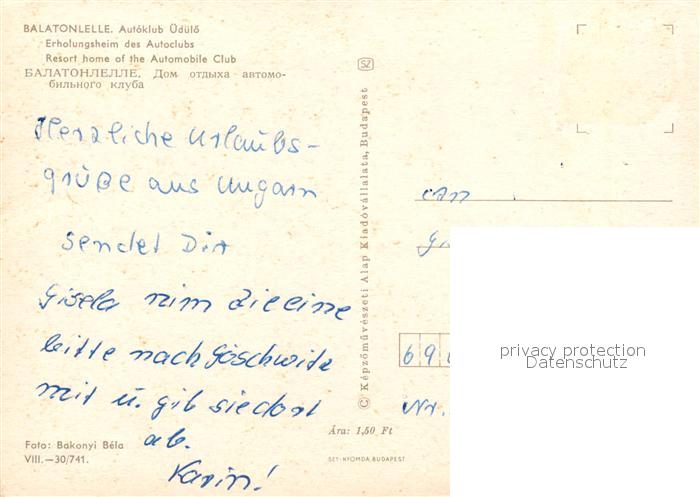 BALATONLELLE. Autóklub Üdülő
Erholungsheim des Autoclubs
Resort home of the Automobile Club
БАЛАТОНЛЕЛЛЕ. Дом отдыха автомо-
бильного клуба
Herzliche Urlaubs-
grüße aus Ungarn
sendet Dir
Gisela nim die eine
bitte nach Göschwitz
mit u. gib sie dort
ab.
Karin!
Foto: Bakonyi Béla
VIII.—30/741.
SZ
© Képzőművészeti Alap Kiadóvállalata, Budapest
Ára: 1,50 Ft
SET-NYOMDA, BUDAPEST
An
69
Nr.
privacy protection
Datenschutz